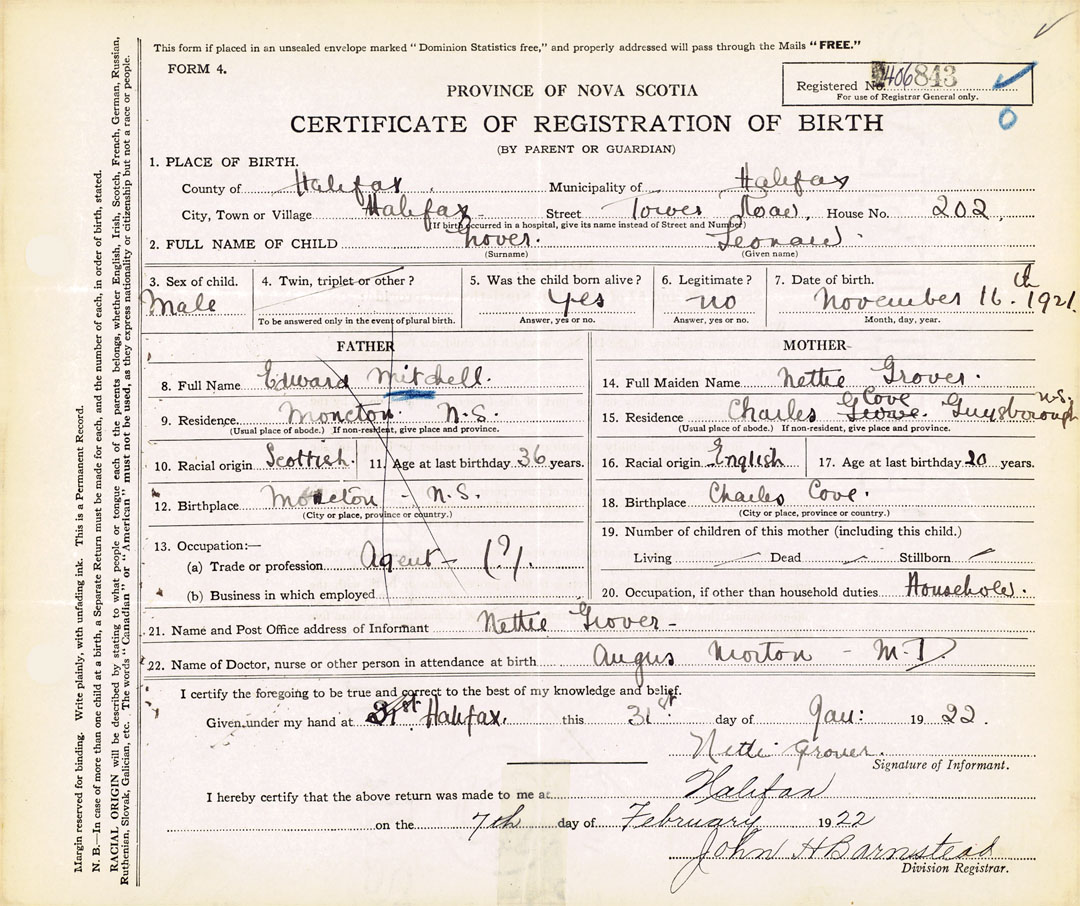 This form if placed in an unsealed envelope marked "Dominion Statistics free," and properly addressed will pass through the Mails "FREE."
FORM 4.
Registered No. 406843
For use of Registrar General only.
PROVINCE OF NOVA SCOTIA
CERTIFICATE OF REGISTRATION OF BIRTH
(BY PARENT OR GUARDIAN)
1. PLACE OF BIRTH.
County of Halifax Municipality of Halifax
City, Town or Village Halifax Street Tower Road, House No. 202
(If birth occurred in a hospital, give its name instead of Street and Number)
2. FULL NAME OF CHILD Grover. Leonard
(Surname) (Given name)
3. Sex of child. 4. Twin, triplet or other? 5. Was the child born alive? 6. Legitimate? 7. Date of birth.
Male yes no November 16th 1921
To be answered only in the event of plural birth. Answer, yes or no. Answer, yes or no. Month, day, year.
FATHER MOTHER
8. Full Name Edward Mitchell. 14. Full Maiden Name Nettie Grover.
9. Residence Moncton. N.S. 15. Residence Charles Cove Guysborough N.S.
(Usual place of abode.) If non-resident, give place and province. (Usual place of abode.) If non-resident, give place and province.
10. Racial origin Scottish 11. Age at last birthday 36 years. 16. Racial origin English 17. Age at last birthday 20 years.
12. Birthplace Moncton - N.S. 18. Birthplace Charles Cove.
(City or place, province or country.) (City or place, province or country.)
13. Occupation:— 19. Number of children of this mother (including this child.)
(a) Trade or profession Agent - (?). Living Dead Stillborn
(b) Business in which employed 20. Occupation, if other than household duties Household.
21. Name and Post Office address of Informant Nettie Grover -
22. Name of Doctor, nurse or other person in attendance at birth Angus Morton - M.D.
I certify the foregoing to be true and correct to the best of my knowledge and belief.
Given under my hand at 31st Halifax. this 31st day of Jan: 1922.
Nettie Grover.
Signature of Informant.
I hereby certify that the above return was made to me at Halifax
on the 7th day of February 1922
John H Barnstead
Division Registrar.
Margin reserved for binding. Write plainly, with unfading ink. This is a Permanent Record.
N. B.—In case of more than one child at a birth, a Separate Return must be made for each, and the number of each, in order of birth, stated.
RACIAL ORIGIN will be described by stating to what people or tongue each of the parents belongs, whether English, Irish, Scotch, French, German, Russian,
Ruthenian, Slovak, Galician, etc. The words "Canadian" or "American" must not be used, as they express nationality or citizenship but not a race or people.